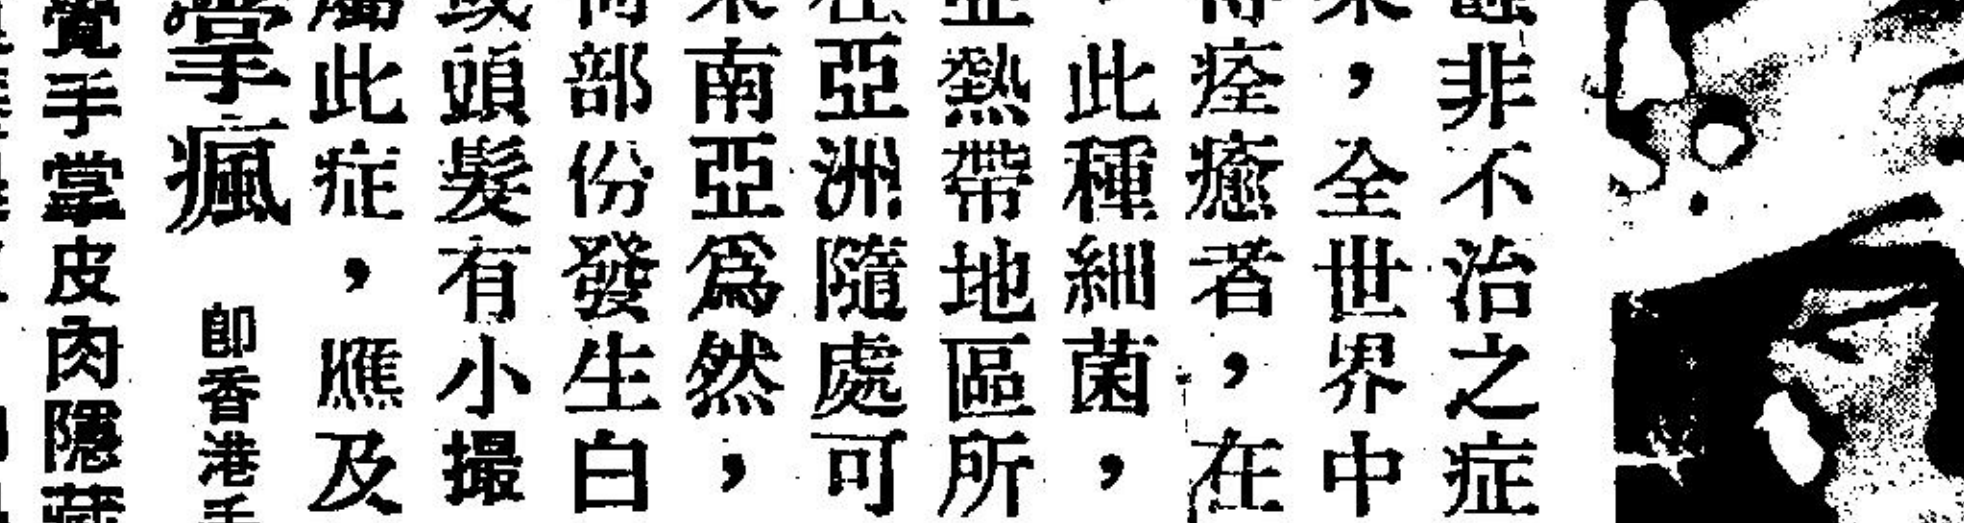 非不治之症
，全世界中
痊癒者，在
此種細菌，
熱帶地區所
亞洲隨處可
南亞為然，
部份發生白
頭髮有小撮
此症，應及
掌瘋
即香港手
覺手掌皮肉隱藏